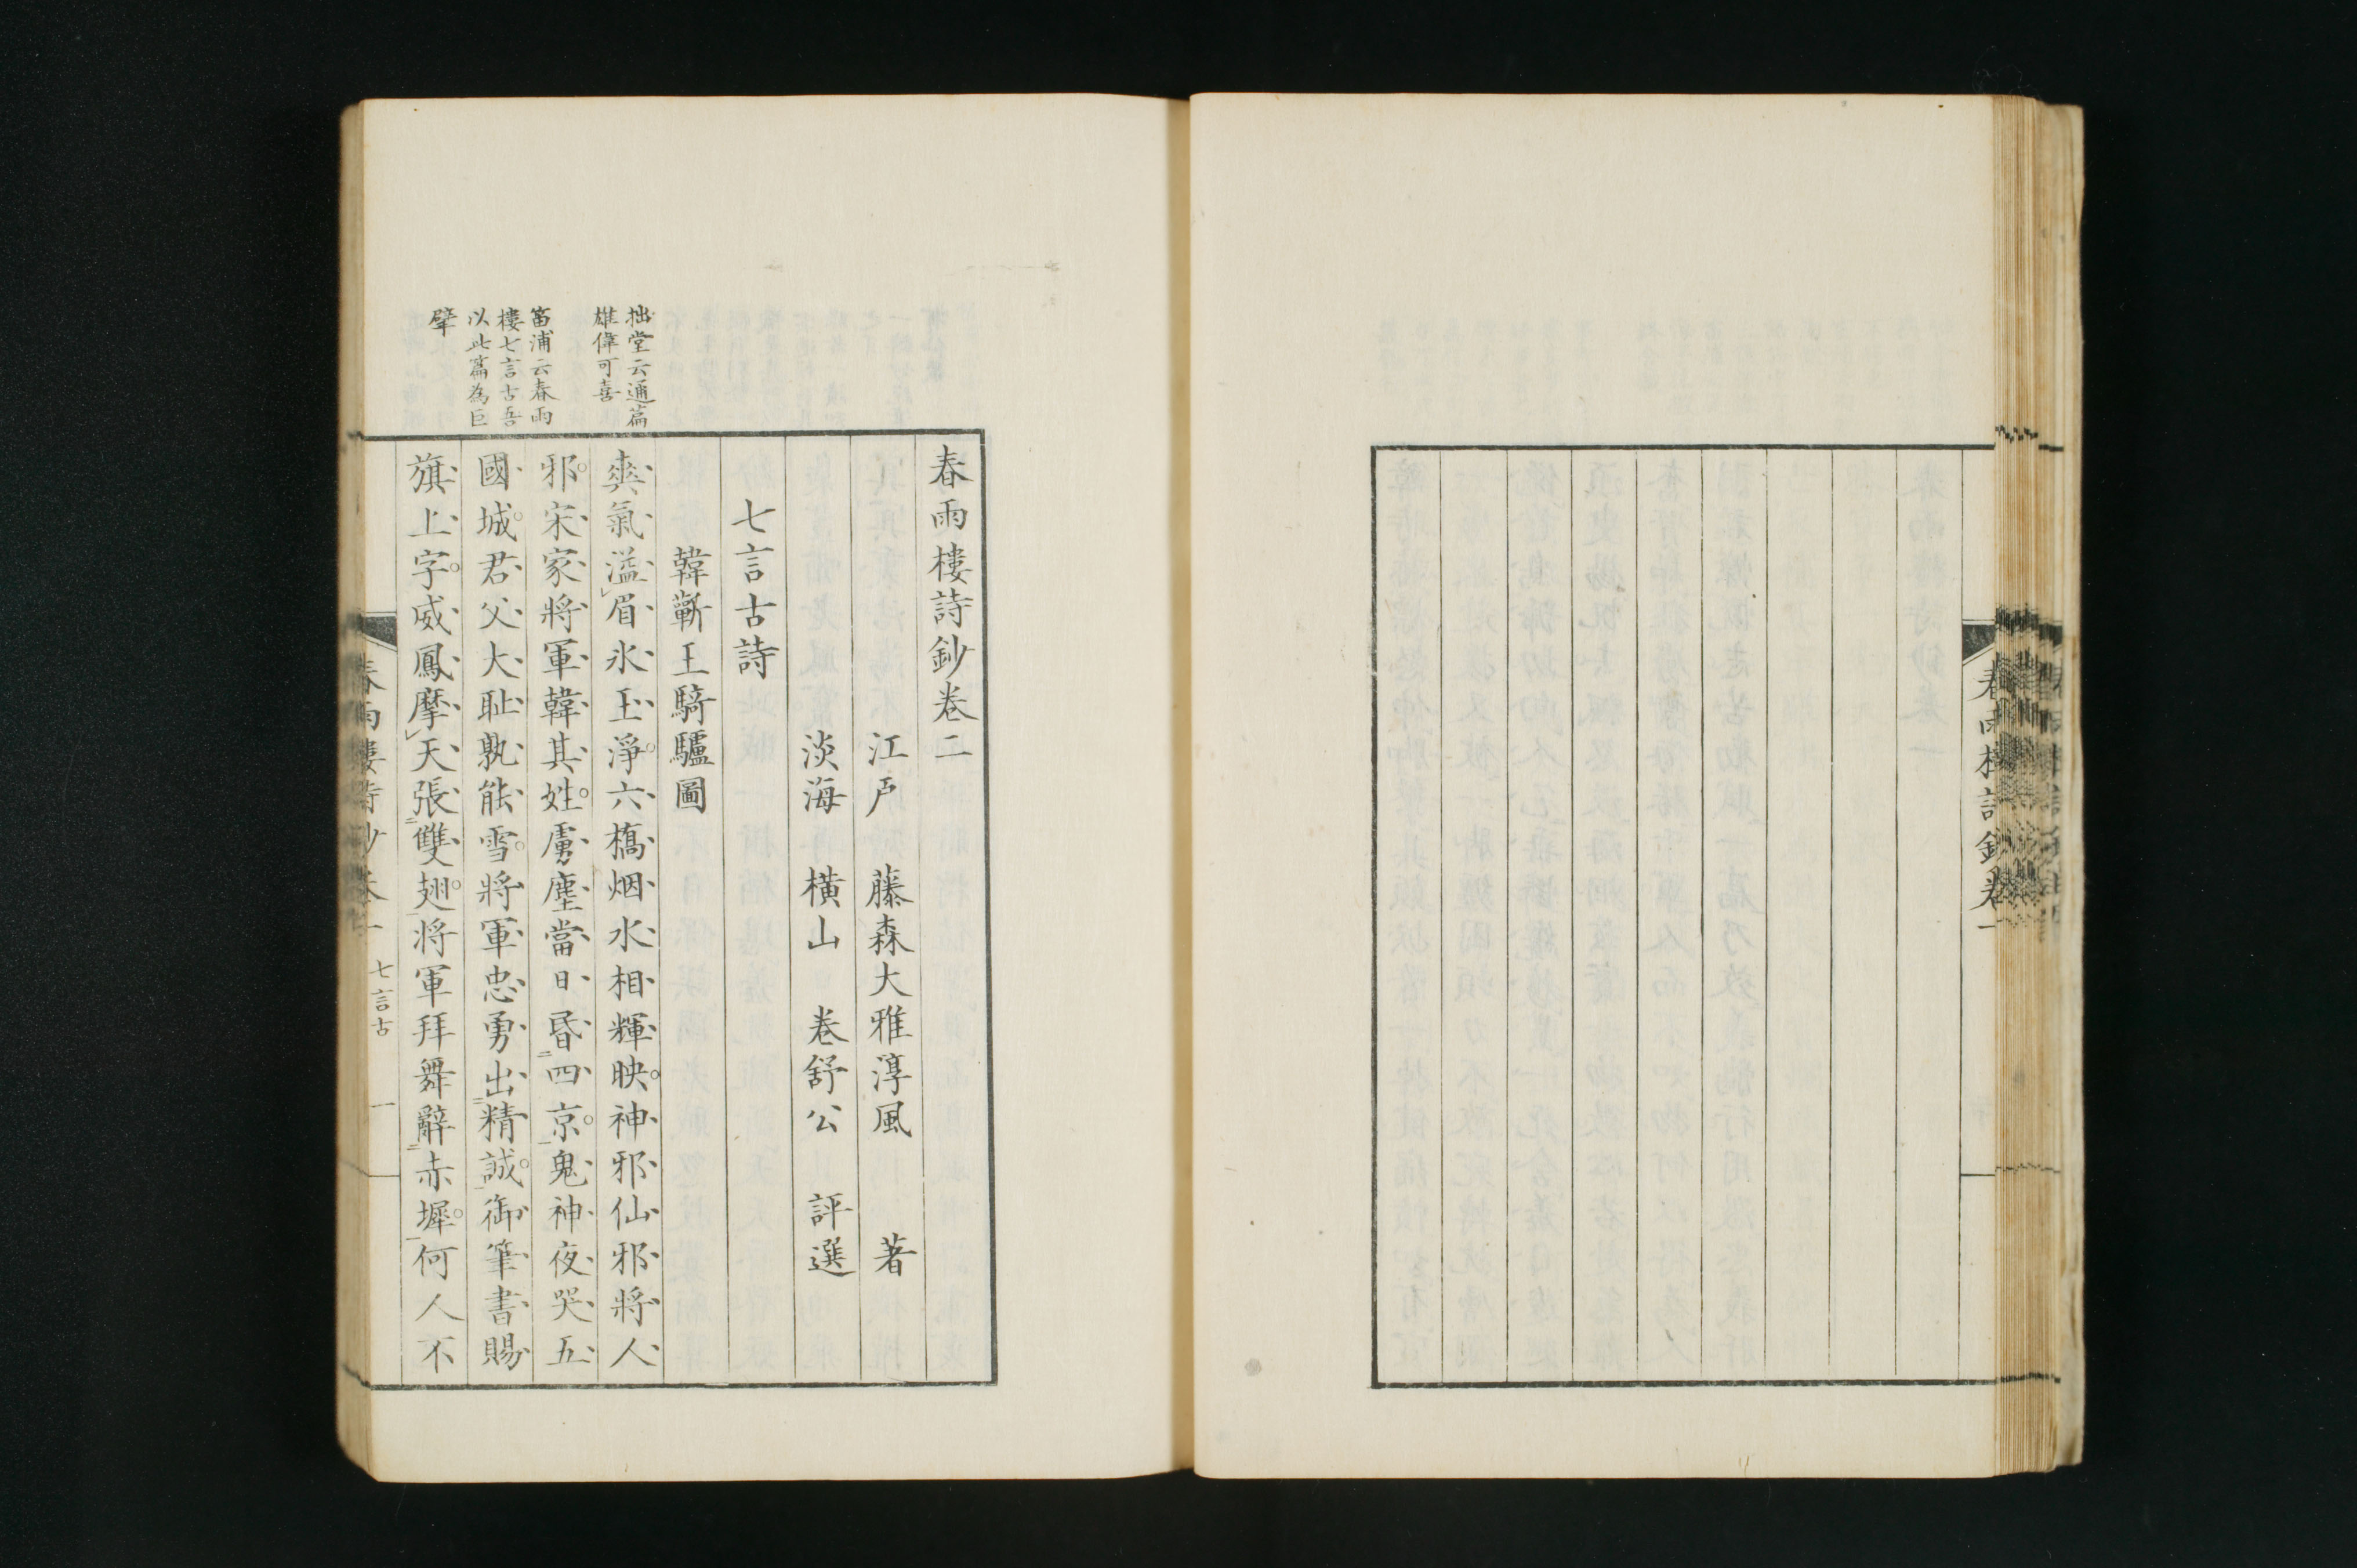 春雨樓詩鈔卷一
春雨樓詩鈔卷二
江戶 藤森大雅淳風 著
淡海 橫山 卷舒公 評選
七言古詩
韓蘄王騎驢圖
爽氣溢眉氷玉淨六橋烟水相輝映神邪仙邪將人
邪宋家將軍韓其姓虜塵當日昏四京鬼神夜哭五
國城君父大耻孰能雪將軍忠勇出精誠御筆書賜
旗上字威鳳摩天張雙翅將軍拜舞辭赤墀何人不
拙堂云通篇
雄偉可喜
笛浦云春雨
樓七言古吾
以此篇為巨
擘
春雨樓詩鈔卷二 七言古 一